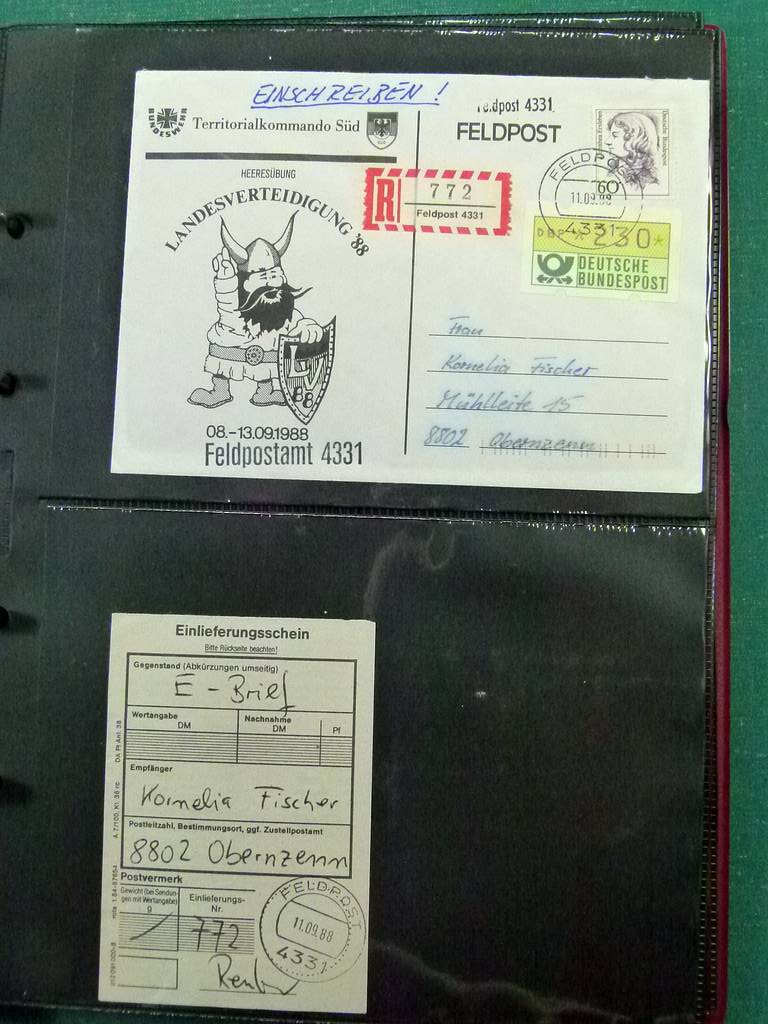 EINSCHREIBEN !
BUNDESWEHR
Territorialkommando Süd
Feldpost 4331
FELDPOST
HEERESÜBUNG
LANDESVERTEIDIGUNG '88
R
772
Feldpost 4331
Deutsche Bundespost
60
FELDPOST
11.09.88
4331
DBP
230*
DEUTSCHE
BUNDESPOST
LV
88
08.-13.09.1988
Feldpostamt 4331
Frau
Kornelia Fischer
Mühlleite 15
8802 Obernzenn
Einlieferungsschein
Bitte Rückseite beachten!
Gegenstand (Abkürzungen umseitig)
E - Brief
Wertangabe
DM
Nachnahme
DM
Pf
Empfänger
Kornelia Fischer
Postleitzahl, Bestimmungsort, ggf. Zustellpostamt
8802 Obernzenn
Postvermerk
Gewicht (bei Sendun-
gen mit Wertangabe)
g
Einlieferungs-
Nr.
772
FELDPOST
11.09.88
4331